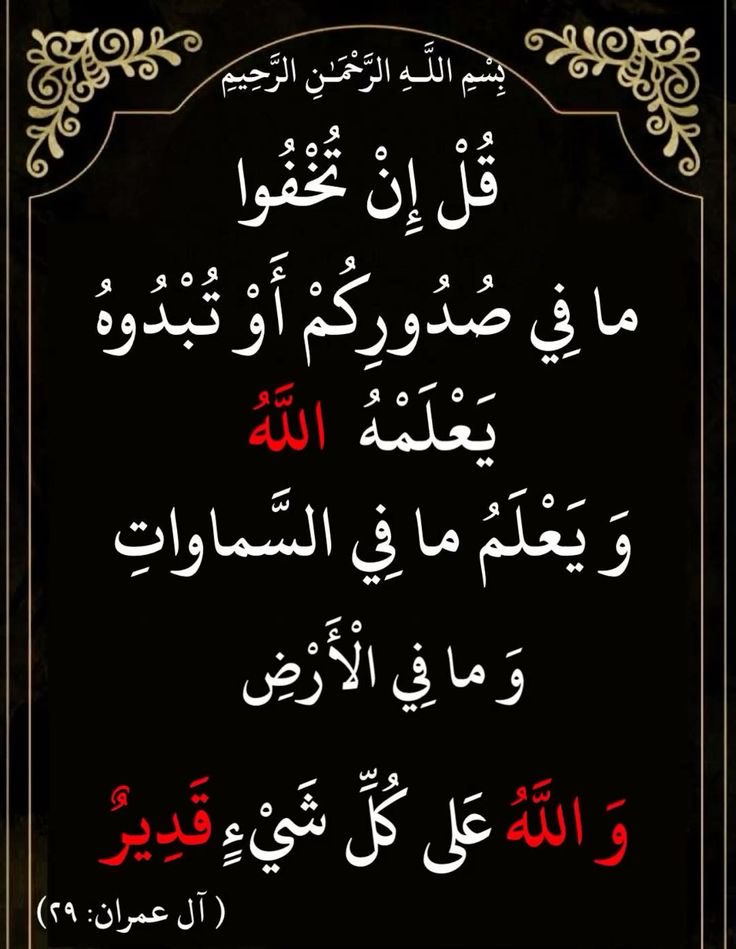 بِسْمِ اللَّـهِ الرَّحْمَـٰنِ الرَّحِيمِ
قُلْ إِنْ تُخْفُوا
ما فِي صُدُورِكُمْ أَوْ تُبْدُوهُ
يَعْلَمْهُ اللَّهُ
وَ يَعْلَمُ ما فِي السَّماواتِ
وَ ما فِي الْأَرْضِ
وَ اللَّهُ عَلى كُلِّ شَيْءٍ قَدِيرٌ
( آل عمران: ٢٩)